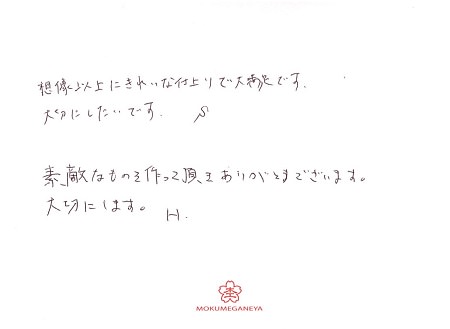 想像以上にきれいな仕上りで大満足です。
大切にしたいです。 S
素敵なものを作って頂きありがとうございます。
大切にします。 H.
MOKUMEGANEYA